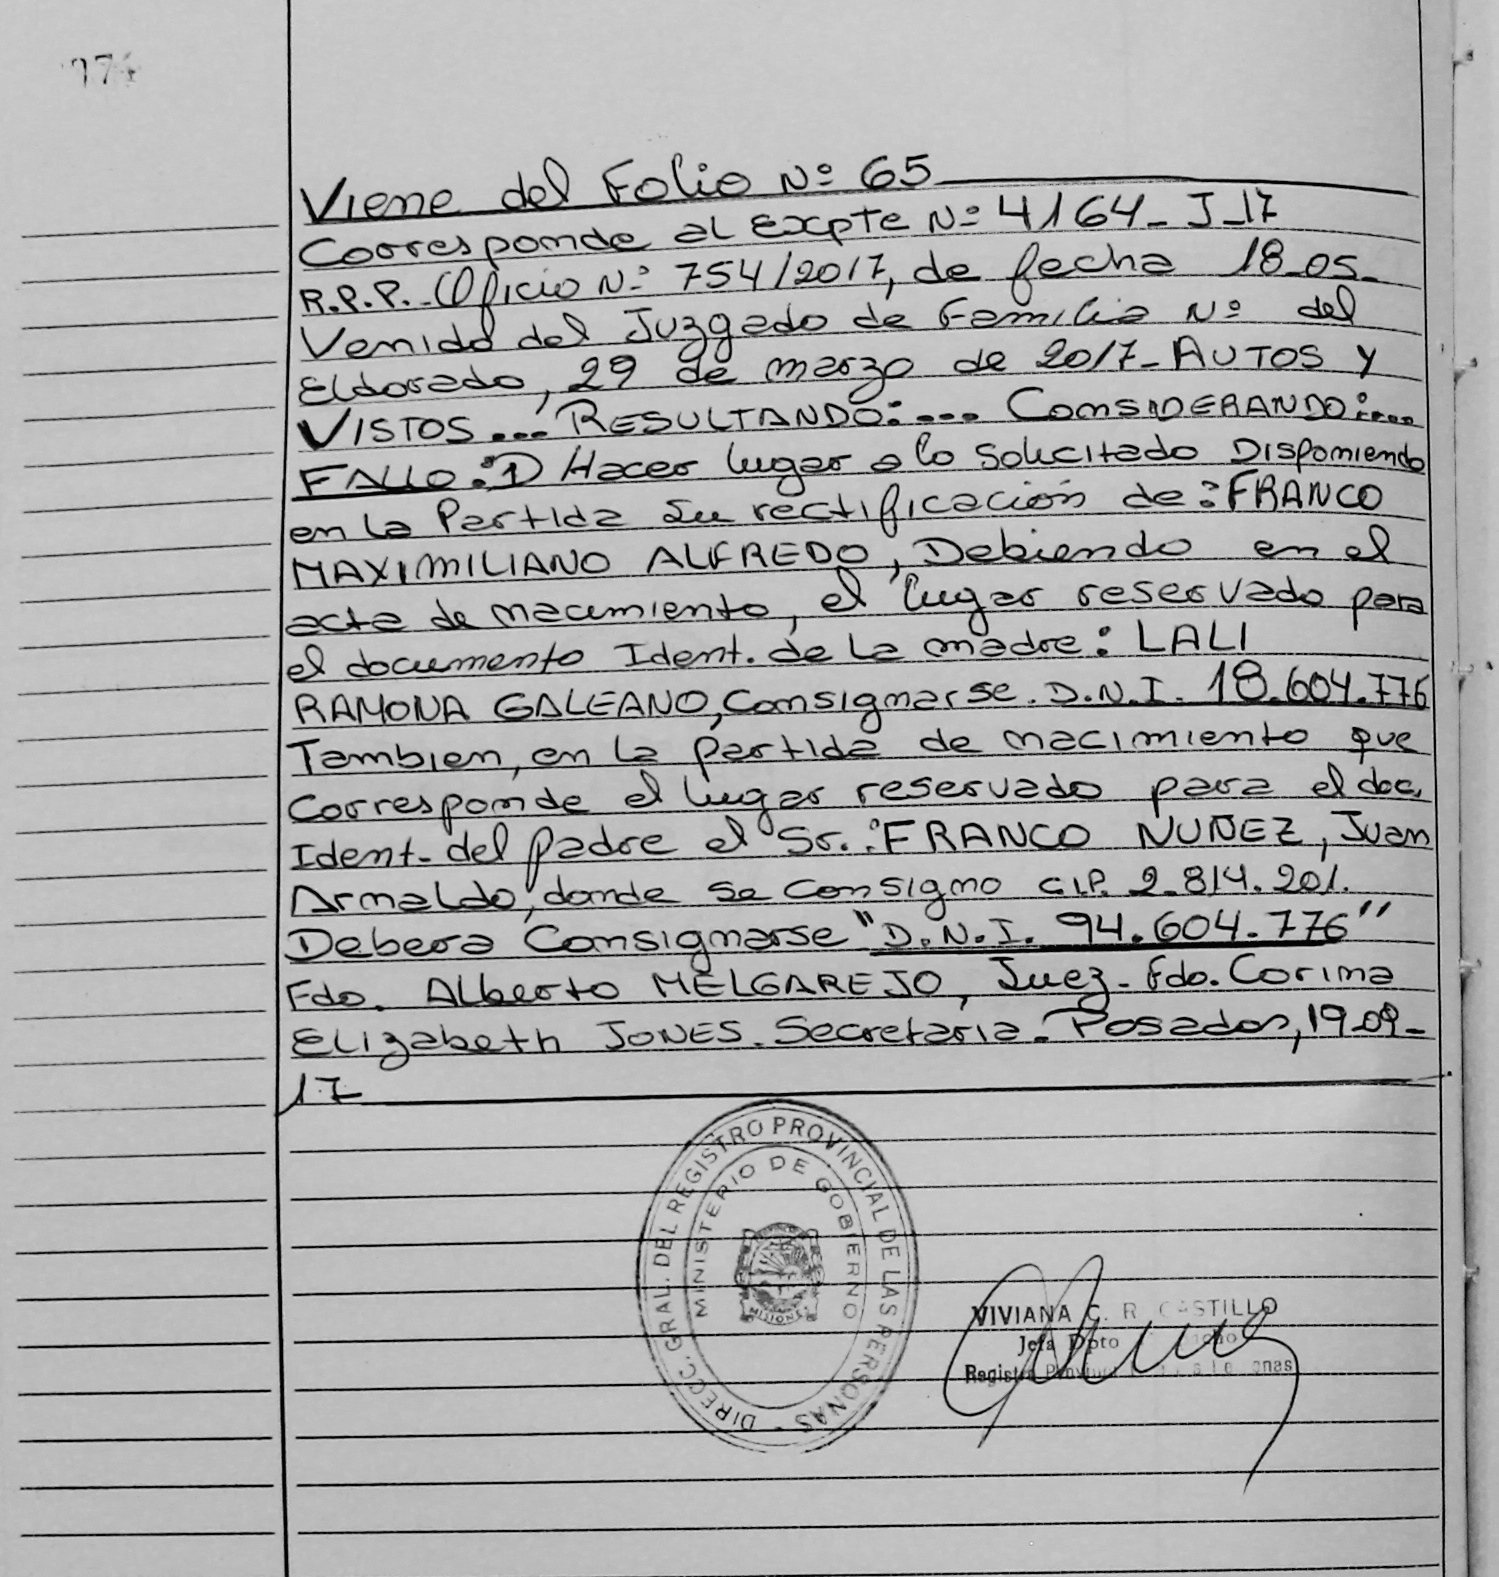 Viene del Folio Nº 65
Corresponde al Expte Nº 4164-J-17
R.P.P.-Oficio Nº 754/2017, de fecha 18-05-
Venido del Juzgado de Familia Nº del
Eldorado, 29 de marzo de 2017- AUTOS Y
VISTOS... RESULTANDO:... CONSIDERANDO:....
FALLO: 1) Hacer lugar a lo Solicitado Disponiendo
en la Partida su rectificación de: FRANCO
MAXIMILIANO ALFREDO, Debiendo en el
acta de nacimiento, el lugar reservado para
el documento Ident. de La madre: LALI
RAMONA GALEANO, Consignarse. D.N.I. 18.604.776
Tambien, en la partida de nacimiento que
Corresponde el lugar reservado para el doc.
Ident. del padre el Sr.: FRANCO NUÑEZ, Juan
Arnaldo, donde se Consigno C.I.P. 2.814.201.
Debera Consignarse "D.N.I. 94.604.776"
Fdo. Alberto MELGAREJO, Juez- Fdo. Corina
Elizabeth JONES. Secretaria- Posadas, 19-09-
17
DIRECC. GRAL. DEL REGISTRO PROVINCIAL DE LAS PERSONAS -
MINISTERIO DE GOBIERNO
MISIONES
VIVIANA C. R. CASTILLO
Jefa Dpto